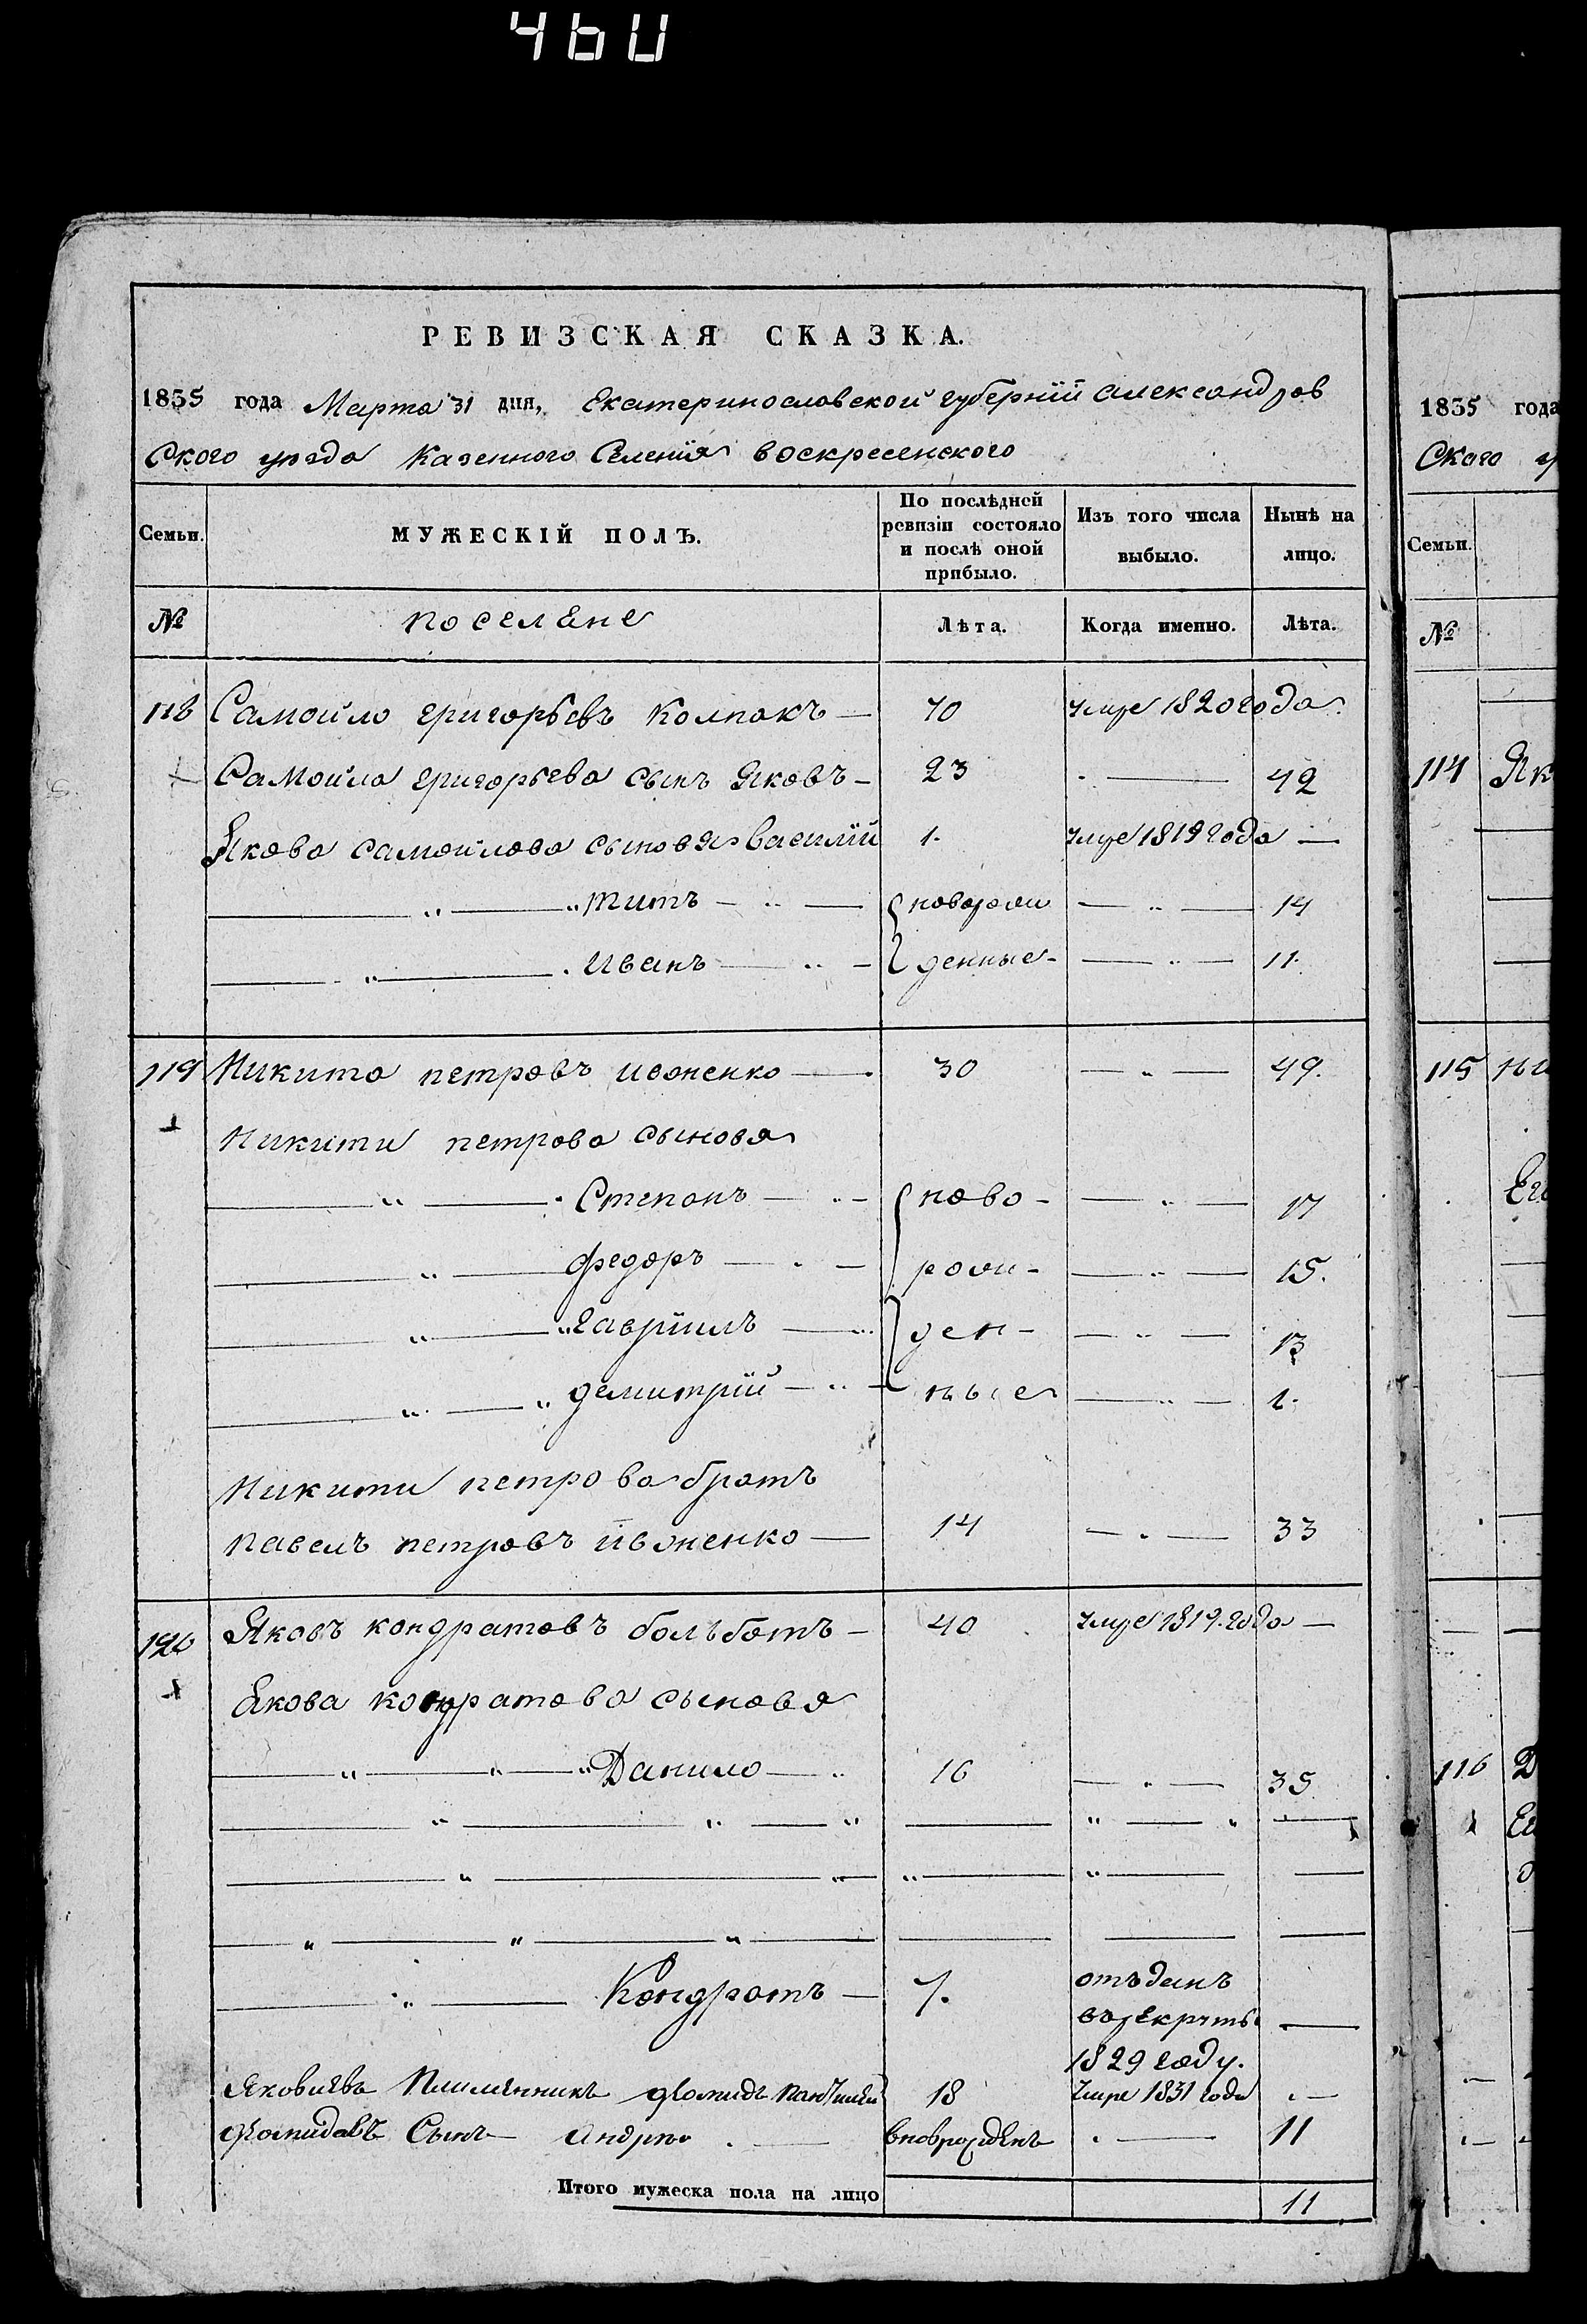 460
РЕВИЗСКАЯ СКАЗКА.
1835 года Марта 31 дня, Екатеринославской губерніи александров
Ского уезда Казенного Селенія воскресенского
Семьи.
МУЖЕСКІЙ ПОЛЪ.
По послѣдней ревизіи состояло и послѣ оной прибыло.
Изъ того числа выбыло.
Нынѣ на лицо.
№ поселяне Лѣта. Когда именно. Лѣта.
118 Самойло григорьевъ Колпакъ — 70 умре 1820 года.
Самойла григорьева сынъ Яковъ — 23 — 42
Якова самойлова сыновя Василій 1. умре 1819 года —
" — " Титъ — " — новорож — " — 14
" — Иванъ — " — денные — " — 11.
119 Никита петровъ ивоненко — 30 — " — 49.
Никити петрова сыновя
— " — Степанъ — " — ново — — " — 17
— " — федоръ — " — рож — — " — 15.
— " — " гавріилъ — " ден — — " — 13
— " — " демитрій — " — ные — " — 1.
Никити петрова братъ
павелъ петровъ ивоненко — 14 — " — 33
120 Яковъ кондратовъ болъботъ — 40 умре 1819. года —
Якова кондратова сыновя
— " — " — " Данило — " 16 — " — 35
— " — " — " — " — " —
— " — " — " — " — —
— " — " — " — — — —
— " — Кондратъ — 7. отъданъ
въ рекруты —
1829 году.
Яковиевъ Племянникъ 18 умре 1831 года " —
Сынъ Андрей — вноврожденъ — 11
Итого мужеска пола на лицо 11
1835 года
Ского у
Семьи.
№
114 Як
115 ни
Ег
116 Д
Ег